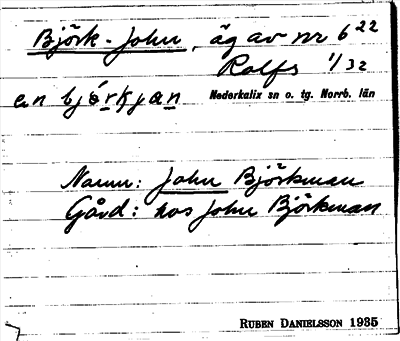 Björk-John, äg av nr 6²²
Rolfs 1/32
en bjö́rkjan Nederkalix sn o. tg. Norrb. län
Namn: John Björkman
Gård: hos John Björkman
RUBEN DANIELSSON 1935
7